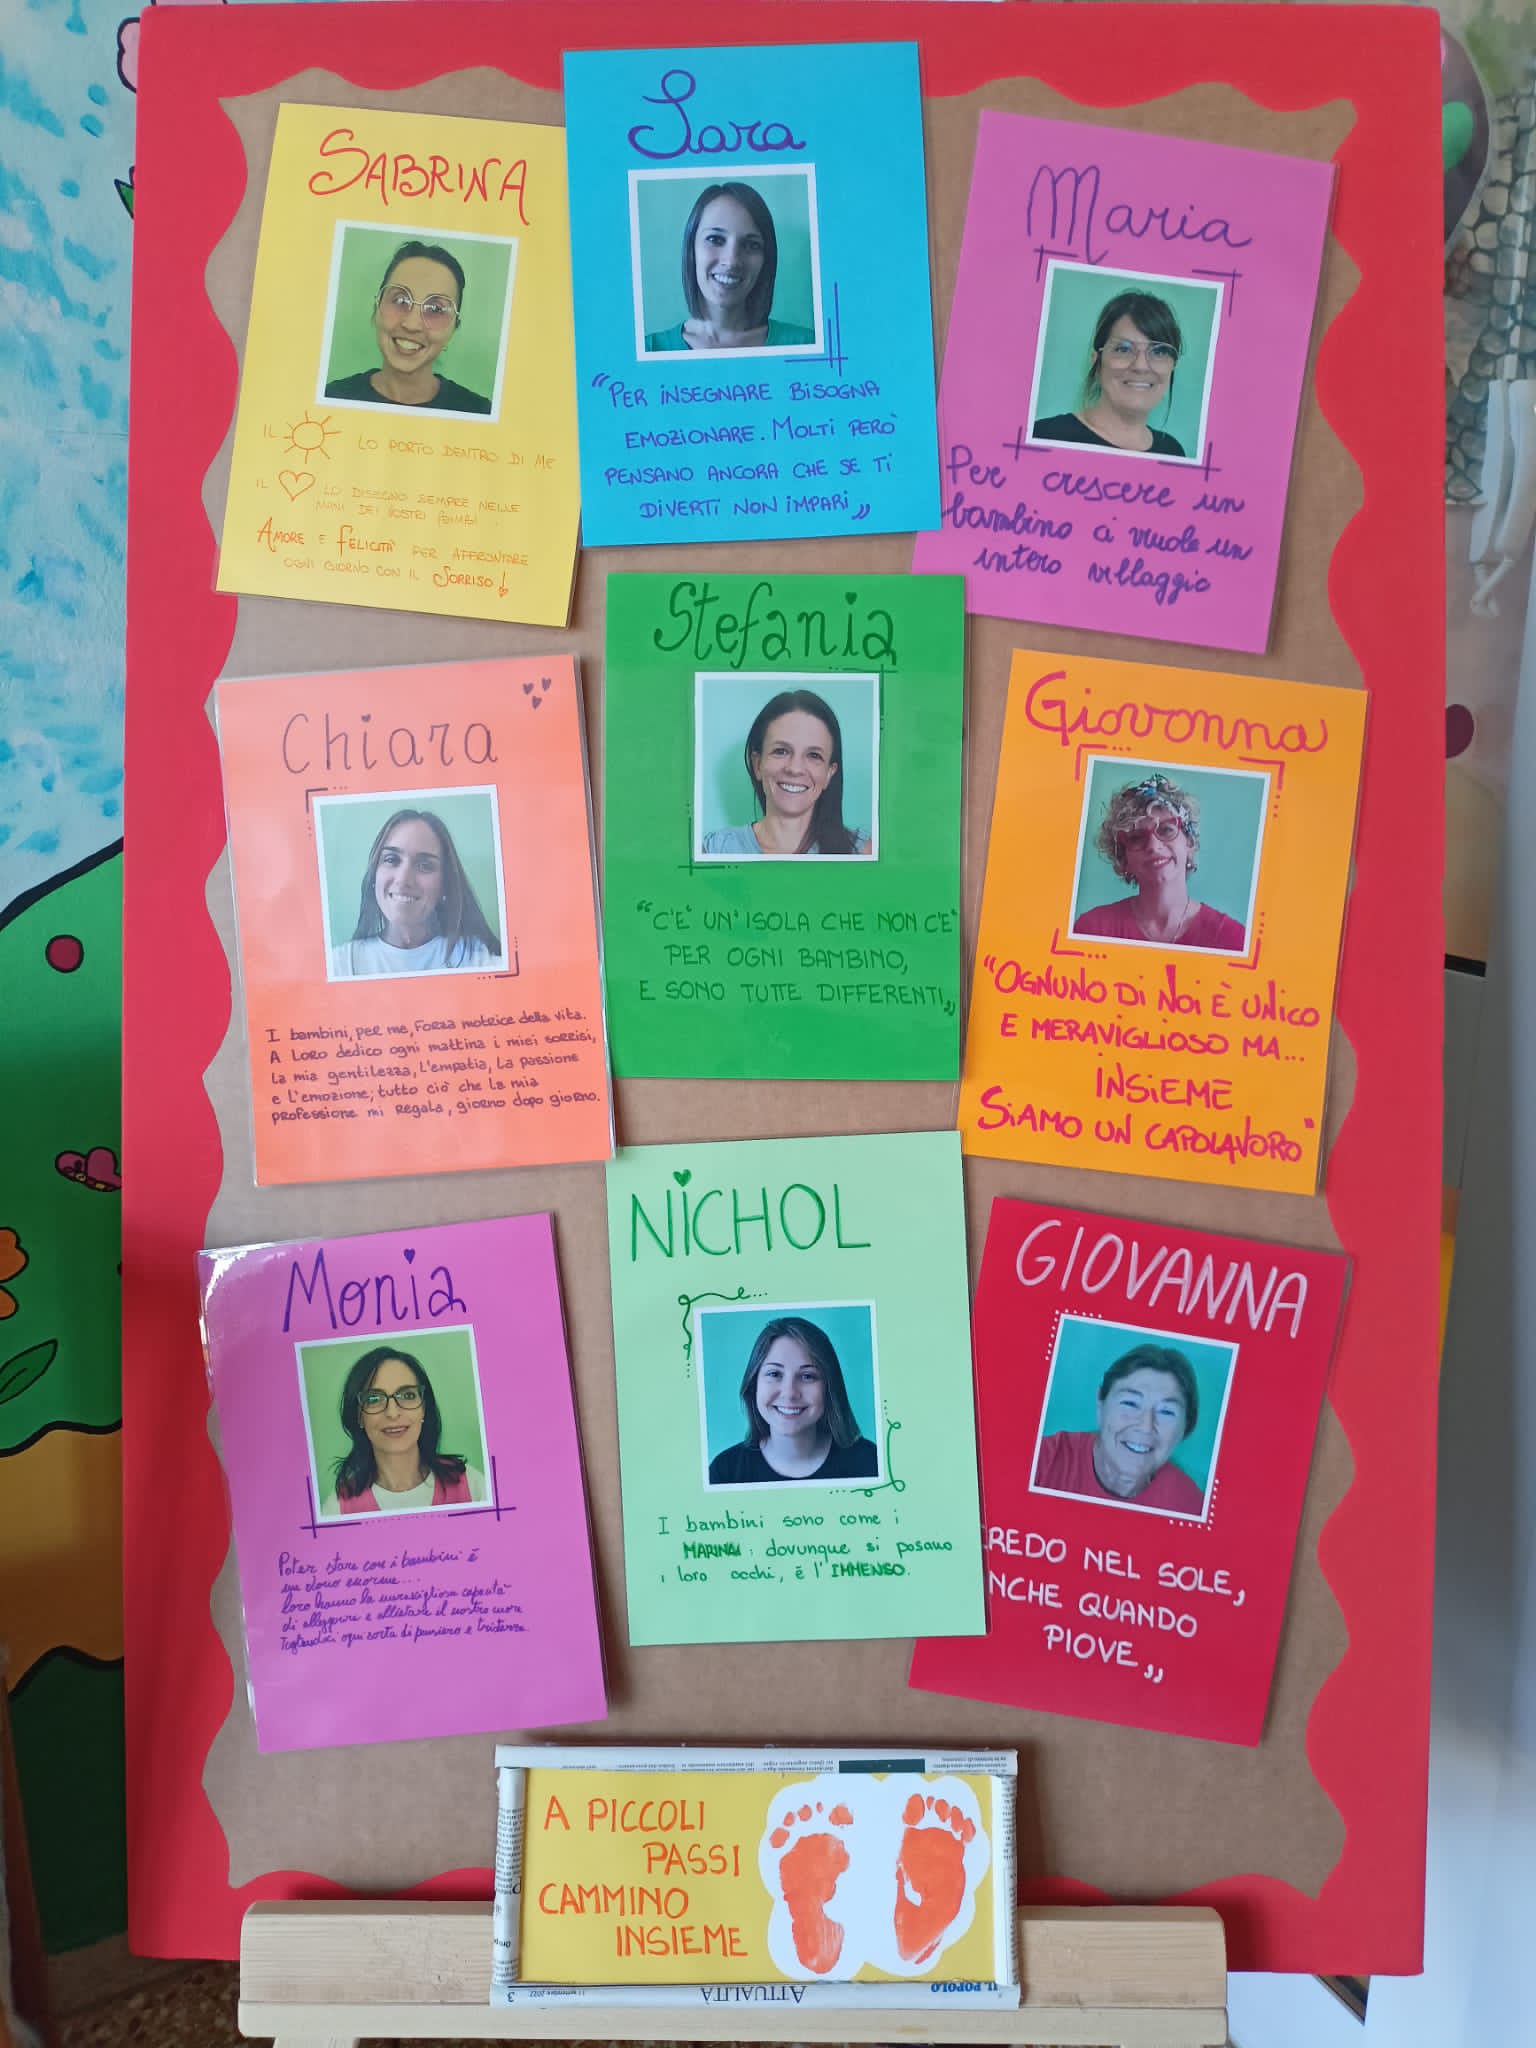 SABRINA
IL LO PORTO DENTRO DI ME
IL LO DISEGNO SEMPRE NELLE
MANI DEI VOSTRI BIMBI.
AMORE E FELICITÀ PER AFFRONTARE
OGNI GIORNO CON IL SORRISO!
Sara
"PER INSEGNARE BISOGNA
EMOZIONARE. MOLTI PERÒ
PENSANO ANCORA CHE SE TI
DIVERTI NON IMPARI"
Maria
Per crescere un
bambino ci vuole un
intero villaggio
Chiara
I bambini, per me, Forza motrice della vita.
A Loro dedico ogni mattina i miei sorrisi,
La mia gentilezza, l'empatia, La passione
e l'emozione; tutto ciò che La mia
professione mi Regala, giorno dopo giorno.
Stefania
"C'E' UN' ISOLA CHE NON C'E'
PER OGNI BAMBINO,
E SONO TUTTE DIFFERENTI"
Giovonna
"OGNUNO DI NOI È UNICO
E MERAVIGLIOSO MA...
INSIEME
SIAMO UN CAPOLAVORO"
Monia
Poter stare con i bambini è
un dono enorme...
loro hanno la meravigliosa capacità
di alleggerire e allietare il nostro cuore
Togliendoci ogni sorta di pensiero e tristezza.
NICHOL
I bambini sono come i
MARINAI: dovunque si posano
i loro occhi, è l'IMMENSO.
GIOVANNA
REDO NEL SOLE,
NCHE QUANDO
PIOVE"
A PICCOLI
PASSI
CAMMINO
INSIEME
IL POPOLO
ATTUALITÀ
11 settembre 2022
3